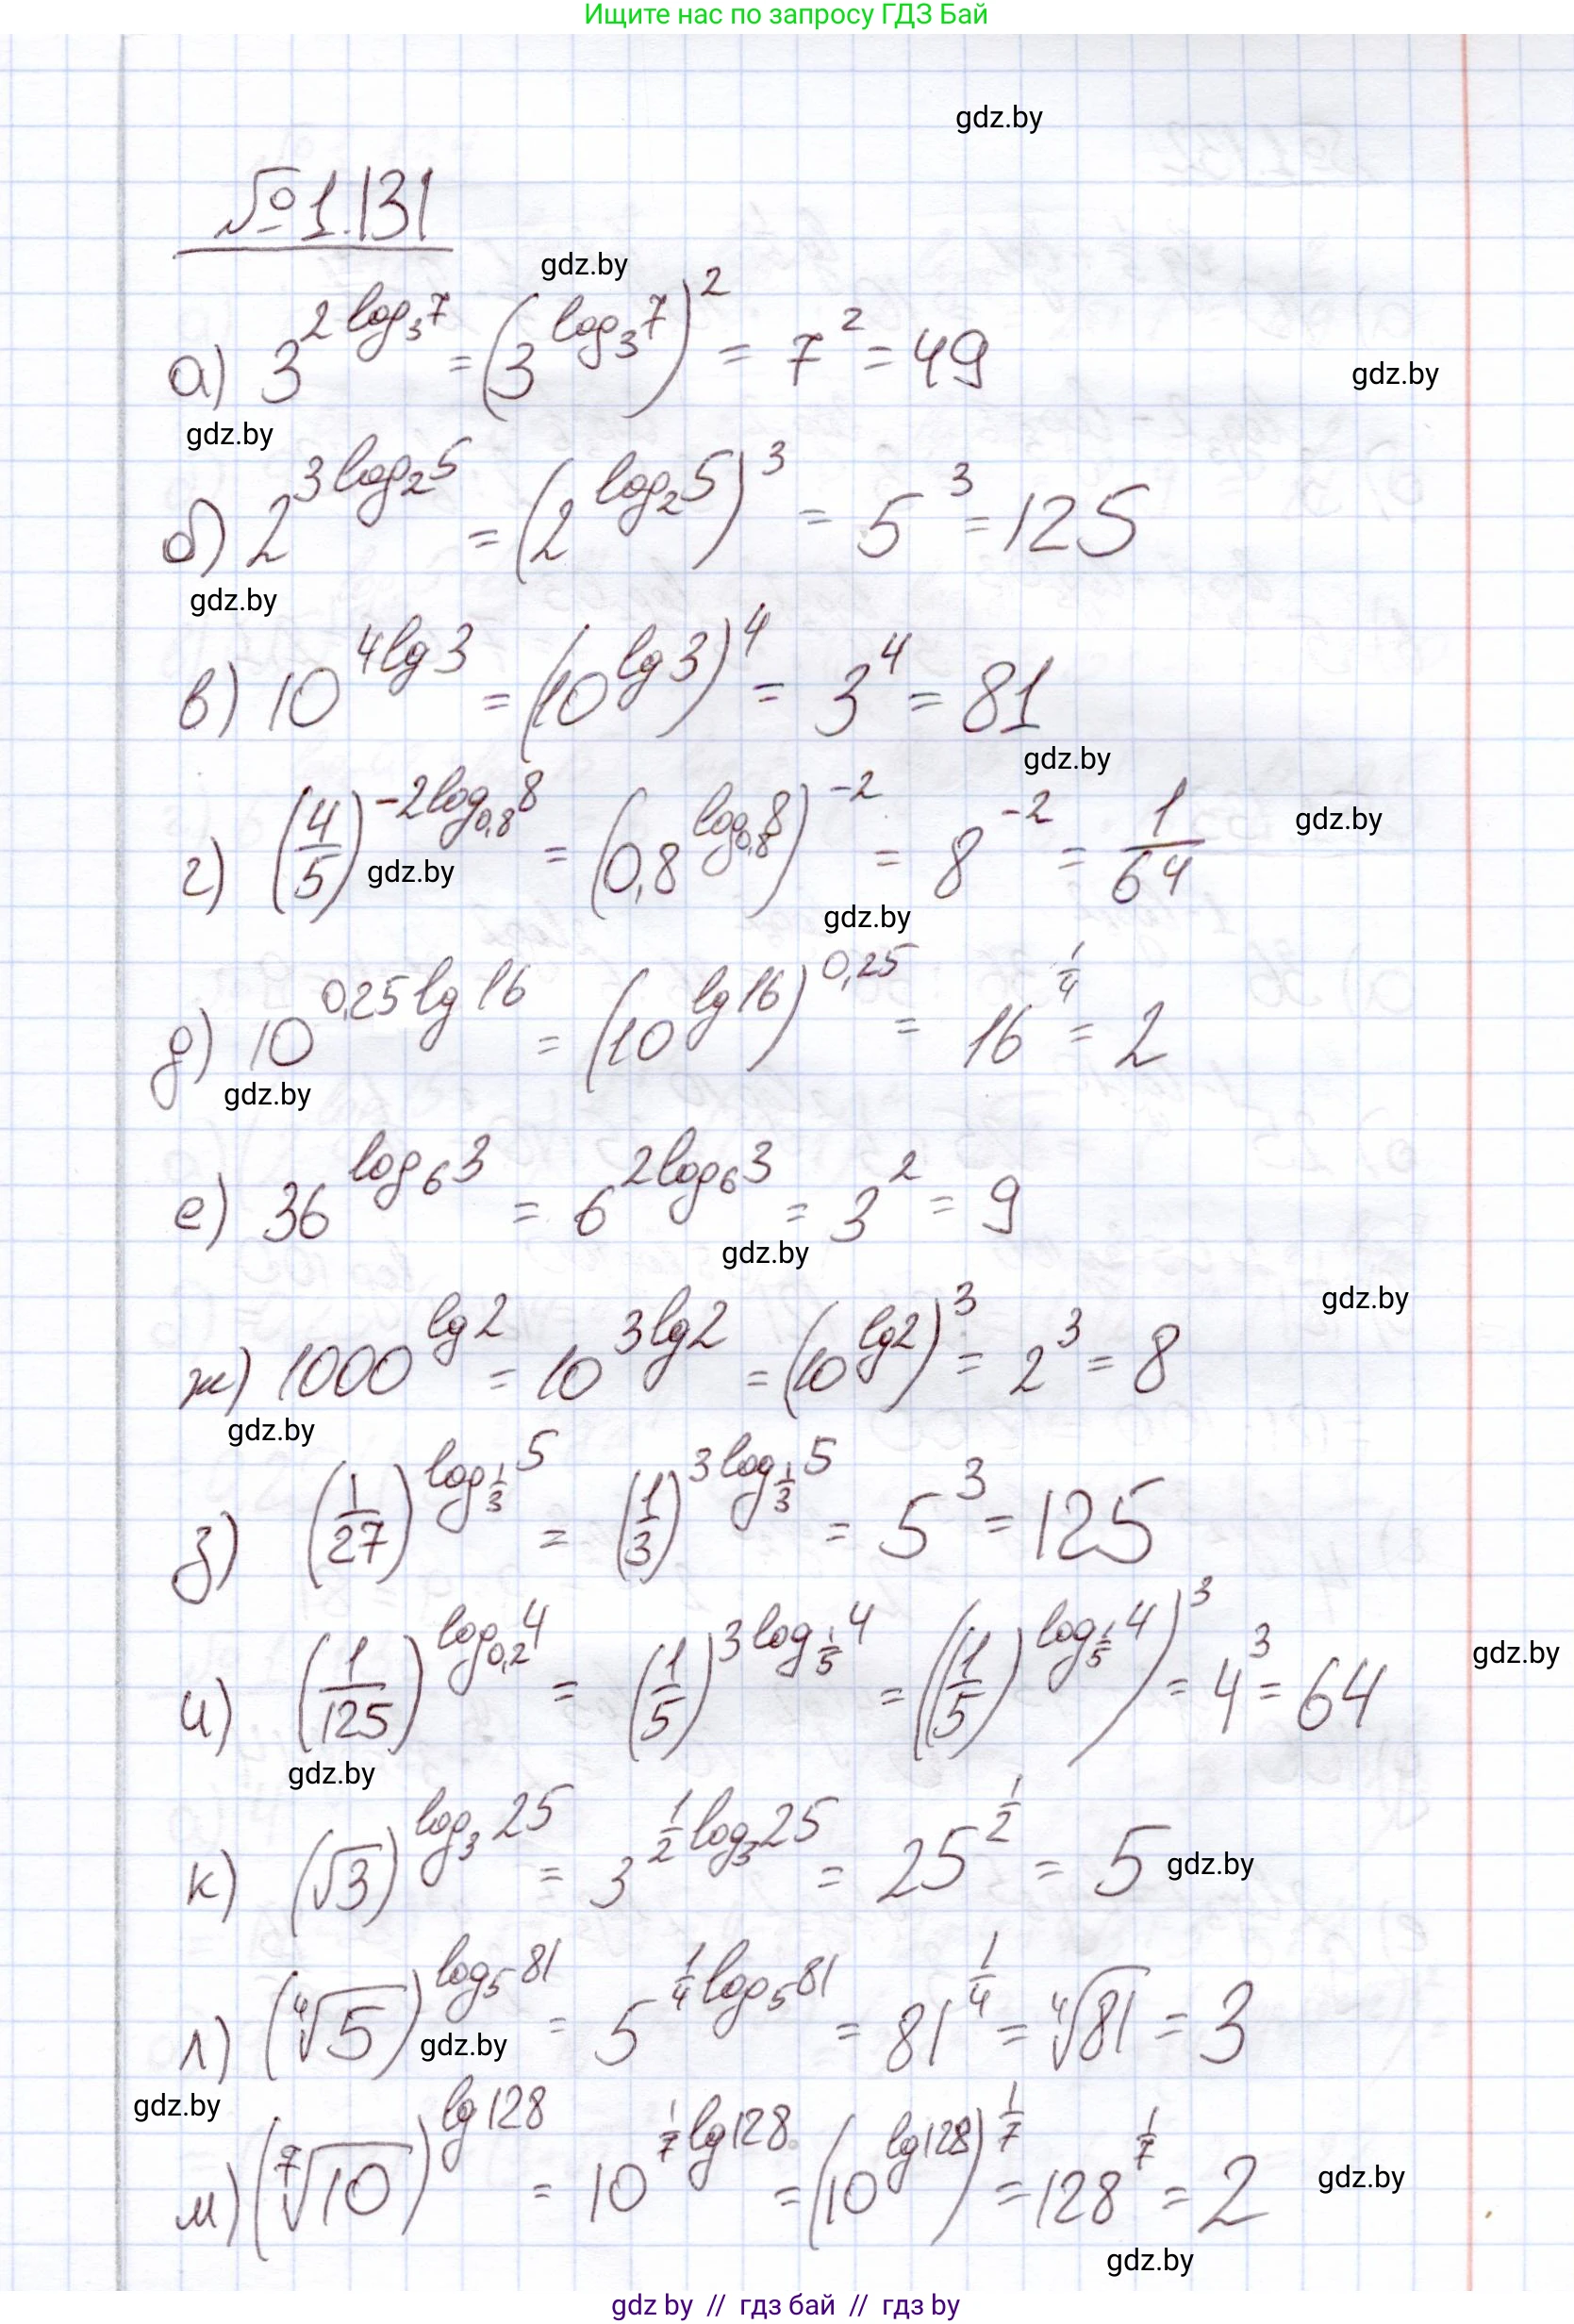 Ищите нас по запросу ГДЗ Бай
gdz.by
№1.131
gdz.by
а) 3^{2 log_3 7} = (3^{log_3 7})^2 = 7^2 = 49
gdz.by
gdz.by
б) 2^{3 log_2 5} = (2^{log_2 5})^3 = 5^3 = 125
gdz.by
в) 10^{4 lg 3} = (10^{lg 3})^4 = 3^4 = 81
gdz.by
г) (4/5)^{-2 log_{0,8} 8} = (0,8^{log_{0,8} 8})^{-2} = 8^{-2} = 1/64
gdz.by
gdz.by
gdz.by
д) 10^{0,25 lg 16} = (10^{lg 16})^{0,25} = 16^{1/4} = 2
gdz.by
е) 36^{log_6 3} = 6^{2 log_6 3} = 3^2 = 9
gdz.by
gdz.by
ж) 1000^{lg 2} = 10^{3 lg 2} = (10^{lg 2})^3 = 2^3 = 8
gdz.by
з) (1/27)^{log_{1/3} 5} = (1/3)^{3 log_{1/3} 5} = 5^3 = 125
и) (1/125)^{log_{0,2} 4} = (1/5)^{3 log_{1/5} 4} = ((1/5)^{log_{1/5} 4})^3 = 4^3 = 64
gdz.by
gdz.by
к) (√3)^{log_3 25} = 3^{1/2 log_3 25} = 25^{1/2} = 5
gdz.by
л) (⁴√5)^{log_5 81} = 5^{1/4 log_5 81} = 81^{1/4} = ⁴√81 = 3
gdz.by
gdz.by
м) (⁷√10)^{lg 128} = 10^{1/7 lg 128} = (10^{lg 128})^{1/7} = 128^{1/7} = 2
gdz.by
gdz.by
gdz by // гдз бай // gdz by